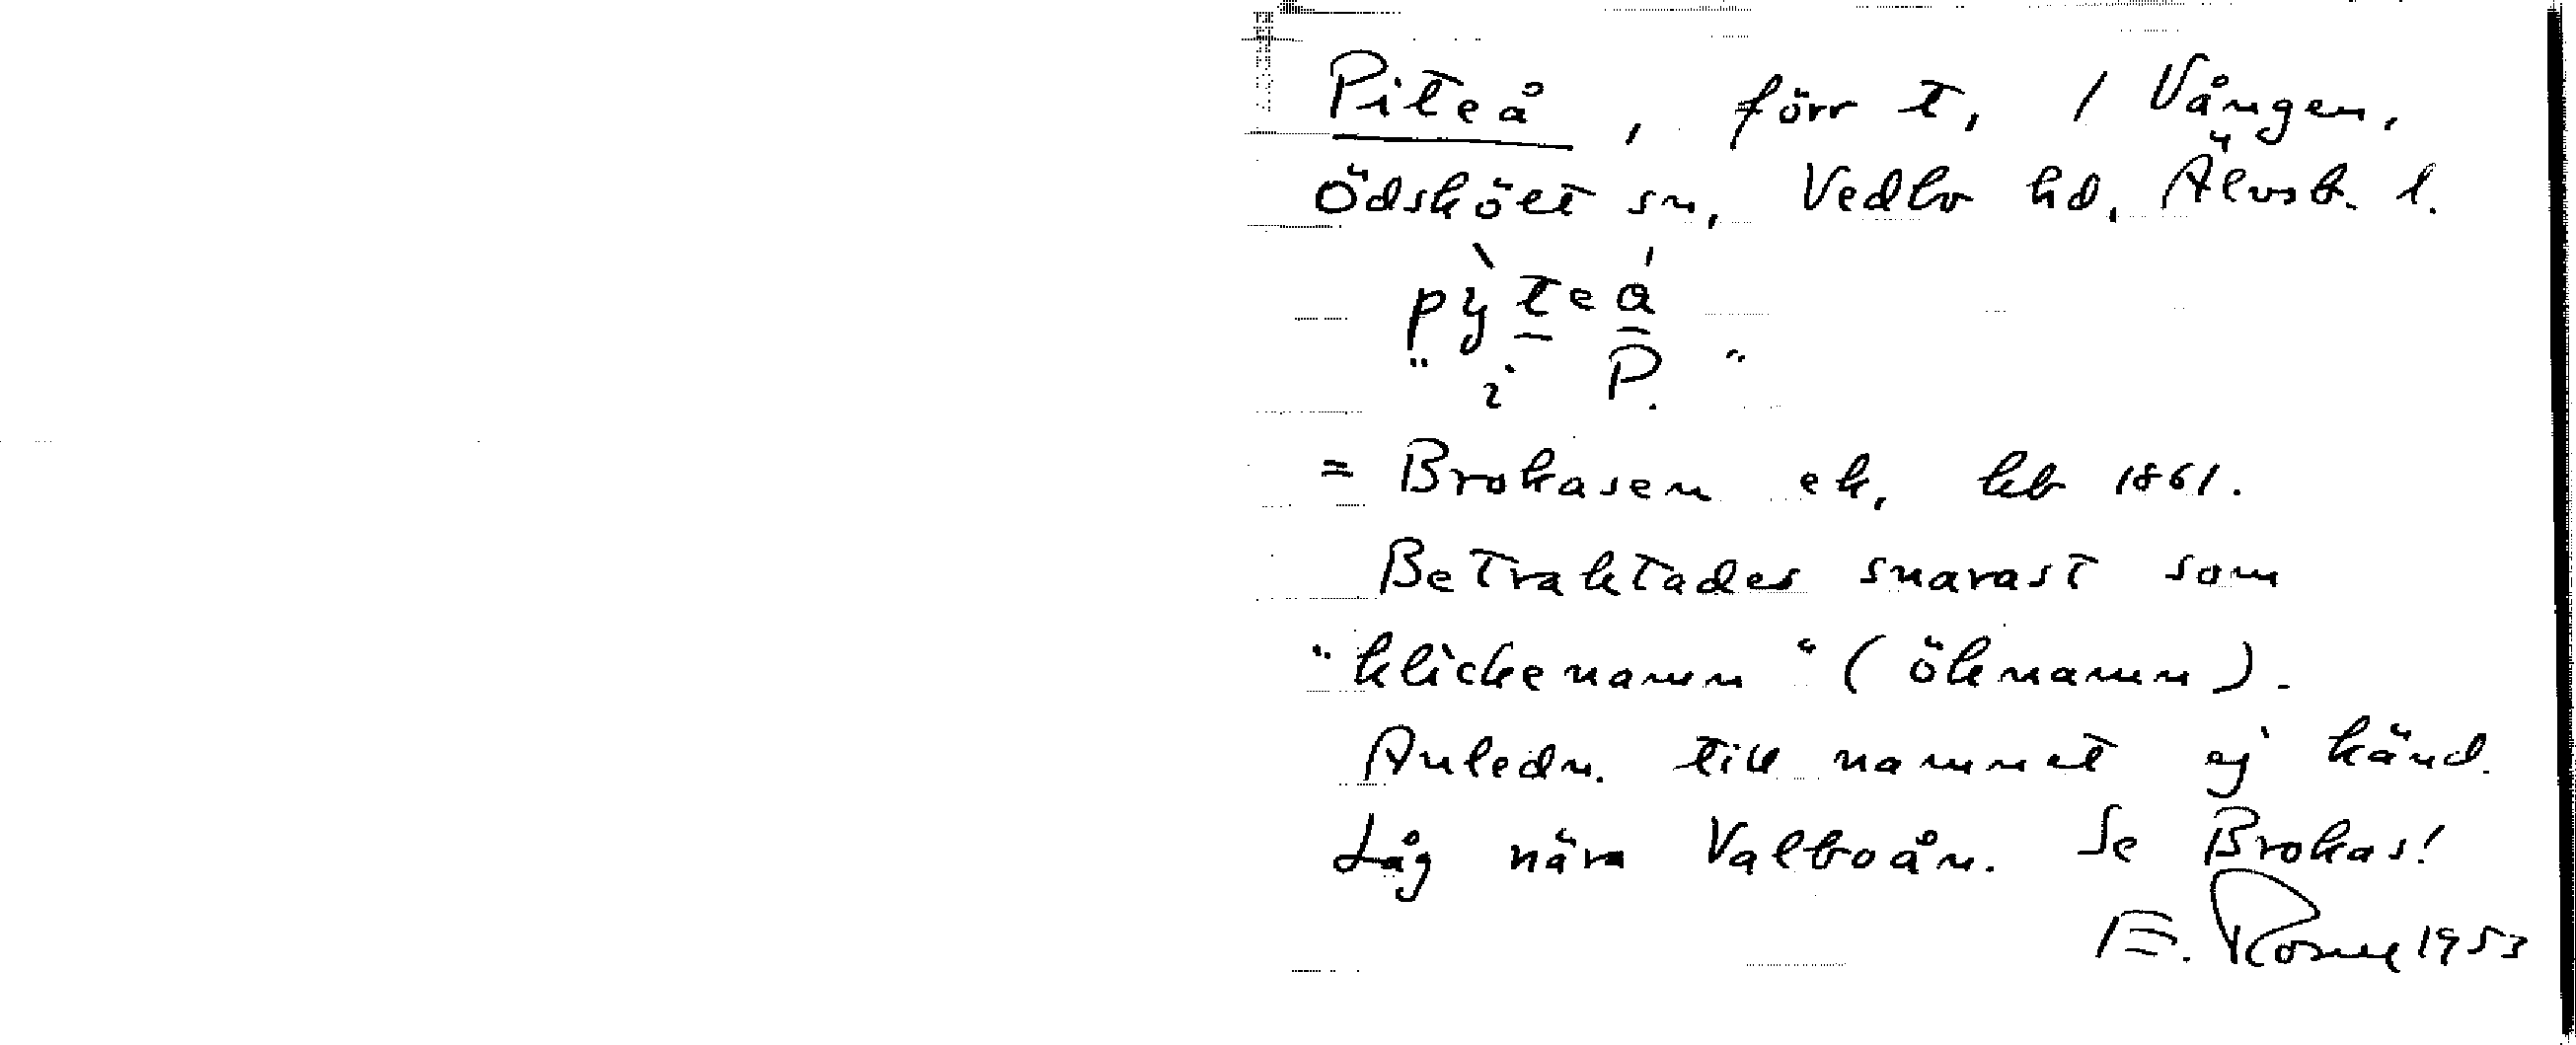 Piteå, förr t, / Vången,
Ödsköët sn, Vedbo hd, Älvsb. l.
pỳteá
" i P. "
= Brokasen ek, kb 1861.
Betraktades snarast som
"klickenamn" (öknamn).
Anledn. till namnet ej känd.
Låg nära Valboån. Se Brokas!
E. 1953